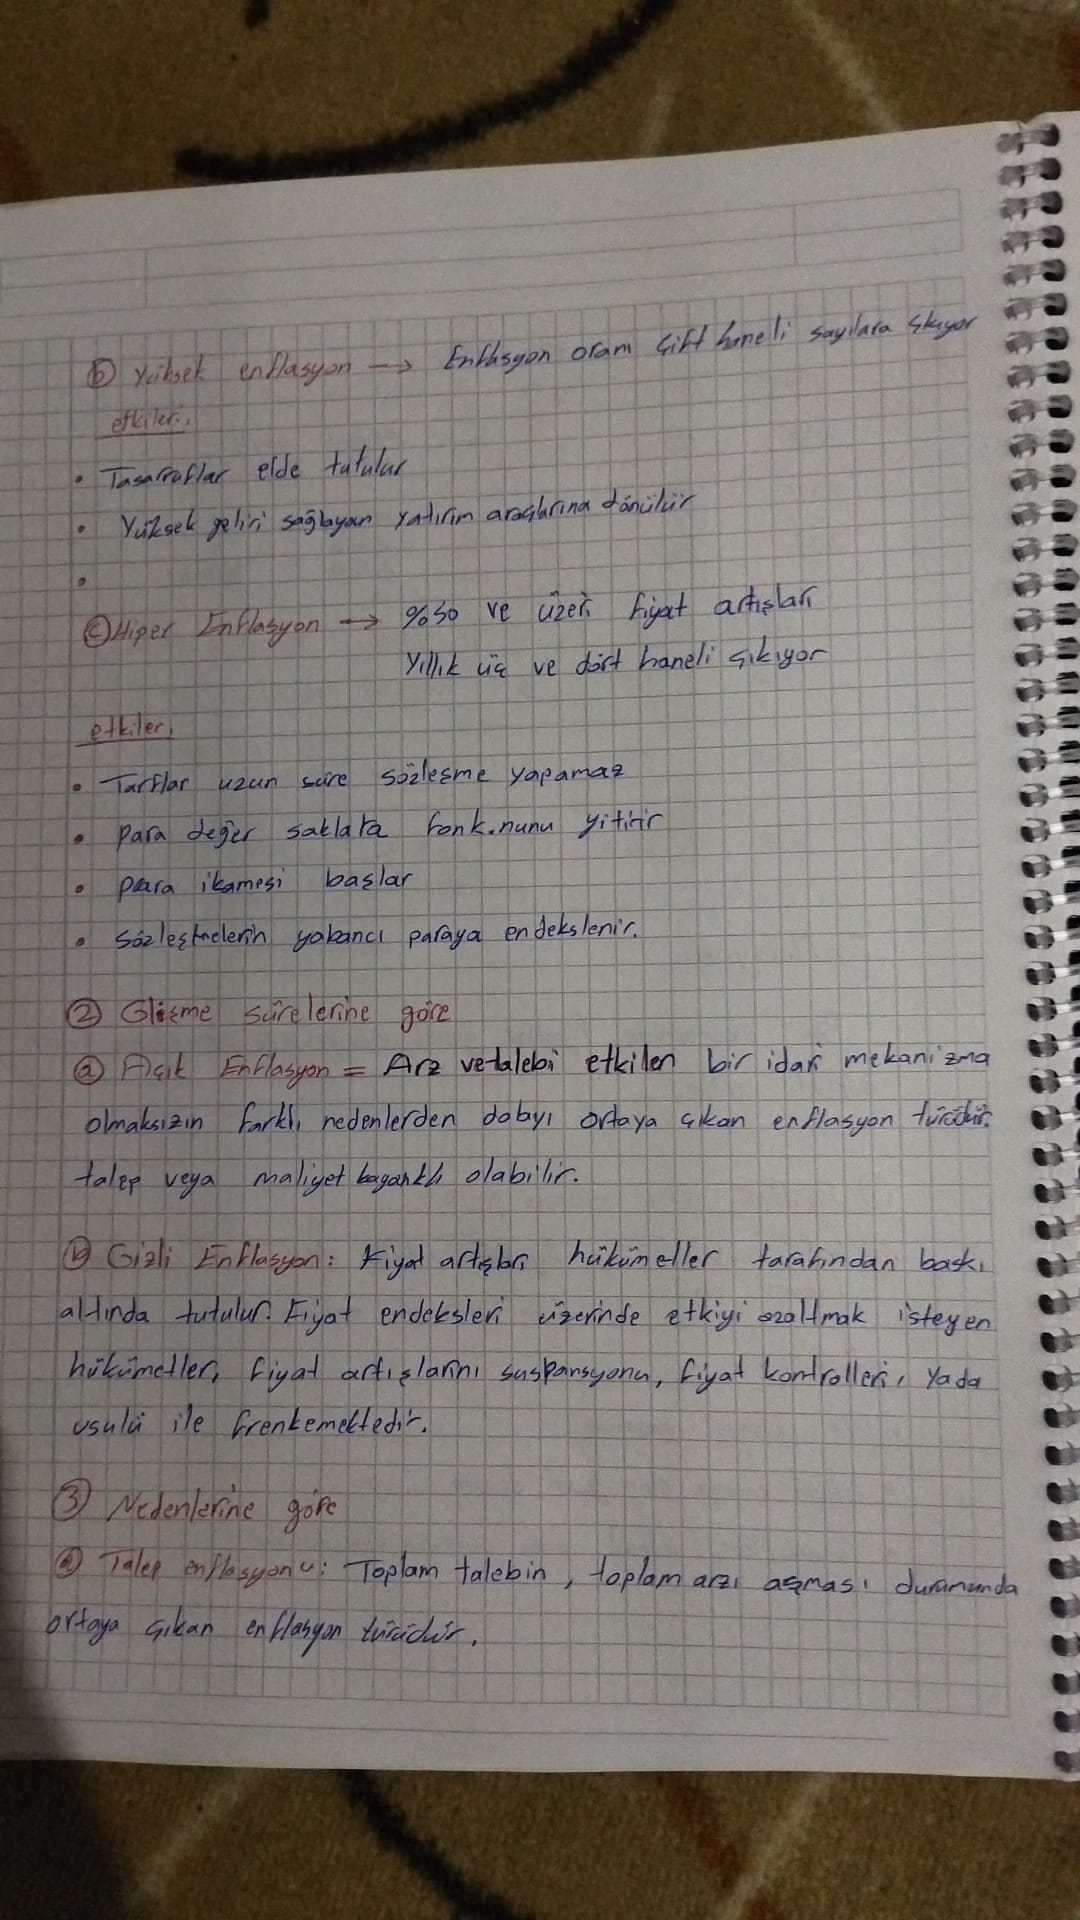 b) Yüksek enflasyon → Enflasyon oranı çift haneli sayılara çıkıyor
etkileri,
• Tasarruflar elde tutulur
• Yüksek geliri sağlayan yatırım araçlarına dönülür
•
c) Hiper Enflasyon → %50 ve üzeri fiyat artışları
Yıllık üç ve dört haneli çıkıyor
etkiler,
• Tarflar uzun süre sözleşme yapamaz
• para değer saklata fonk.nunu yitirir
• para ikamesi başlar
• sözleşmelerin yabancı paraya endekslenir.
② Glişme sürelerine göre
a) Açık Enflasyon = Arz ve talebi etkilen bir idari mekanizma
olmaksızın farklı nedenlerden dolayı ortaya çıkan enflasyon türüdür.
talep veya maliyet kaynaklı olabilir.
b) Gizli Enflasyon: Fiyat artışları hükümetler tarafından baskı
altında tutulur. Fiyat endeksleri üzerinde etkiyi azaltmak isteyen
hükümetler, fiyat artışlarını suspansyonu, fiyat kontrolleri, yada
usulü ile frenkemektedir.
③ Nedenlerine göre
a) Talep enflasyonu: Toplam talebin, toplam arzı aşması durumunda
ortaya çıkan enflasyon türüdür.